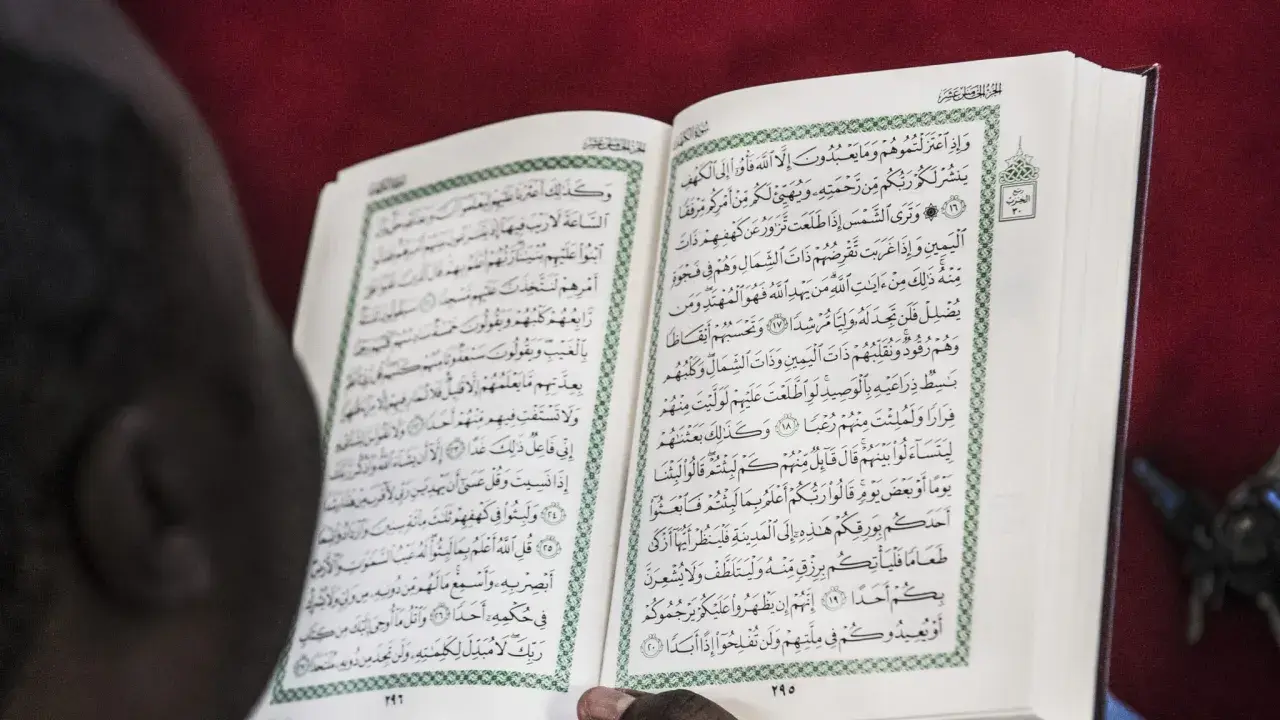 الجزء الخامس عشر
سورة الكهف
وَإِذِ ٱعۡتَزَلۡتُمُوهُمۡ وَمَا يَعۡبُدُونَ إِلَّا ٱللَّهَ فَأۡوُۥٓاْ إِلَى ٱلۡكَهۡفِ
يَنشُرۡ لَكُمۡ رَبُّكُم مِّن رَّحۡمَتِهِۦ وَيُهَيِّئۡ لَكُم مِّنۡ أَمۡرِكُم مِّرۡفَقٗا
١٦ ۞ وَتَرَى ٱلشَّمۡسَ إِذَا طَلَعَت تَّزَٰوَرُ عَن كَهۡفِهِمۡ ذَاتَ
ٱلۡيَمِينِ وَإِذَا غَرَبَت تَّقۡرِضُهُمۡ ذَاتَ ٱلشِّمَالِ وَهُمۡ فِي فَجۡوَةٖ
مِّنۡهُۚ ذَٰلِكَ مِنۡ ءَايَٰتِ ٱللَّهِۗ مَن يَهۡدِ ٱللَّهُ فَهُوَ ٱلۡمُهۡتَدِۖ وَمَن
يُضۡلِلۡ فَلَن تَجِدَ لَهُۥ وَلِيّٗا مُّرۡشِدٗا ١٧ وَتَحۡسَبُهُمۡ أَيۡقَاظٗا
وَهُمۡ رُقُودٞۚ وَنُقَلِّبُهُمۡ ذَاتَ ٱلۡيَمِينِ وَذَاتَ ٱلشِّمَالِۖ وَكَلۡبُهُم
بَٰسِطٞ ذِرَاعَيۡهِ بِٱلۡوَصِيدِۚ لَوِ ٱطَّلَعۡتَ عَلَيۡهِمۡ لَوَلَّيۡتَ مِنۡهُمۡ
فِرَارٗا وَلَمُلِئۡتَ مِنۡهُمۡ رُعۡبٗا ١٨ وَكَذَٰلِكَ بَعَثۡنَٰهُمۡ
لِيَتَسَآءَلُواْ بَيۡنَهُمۡۚ قَالَ قَآئِلٞ مِّنۡهُمۡ كَمۡ لَبِثۡتُمۡۖ قَالُواْ لَبِثۡنَا
يَوۡمًا أَوۡ بَعۡضَ يَوۡمٖۚ قَالُواْ رَبُّكُمۡ أَعۡلَمُ بِمَا لَبِثۡتُمۡ فَٱبۡعَثُوٓاْ
أَحَدَكُم بِوَرِقِكُمۡ هَٰذِهِۦٓ إِلَى ٱلۡمَدِينَةِ فَلۡيَنظُرۡ أَيُّهَآ أَزۡكَىٰ
طَعَامٗا فَلۡيَأۡتِكُم بِرِزۡقٖ مِّنۡهُ وَلۡيَتَلَطَّفۡ وَلَا يُشۡعِرَنَّ
بِكُمۡ أَحَدًا ١٩ إِنَّهُمۡ إِن يَظۡهَرُواْ عَلَيۡكُمۡ يَرۡجُمُوكُمۡ
أَوۡ يُعِيدُوكُمۡ فِي مِلَّتِهِمۡ وَلَن تُفۡلِحُوٓاْ إِذًا أَبَدٗا ٢٠
ربع
الحزب
٣٠
٢٩٥
الجزء الخامس عشر
وَكَذَٰلِكَ أَعۡثَرۡنَا عَلَيۡهِمۡ لِيَعۡلَمُوٓاْ
ٱلسَّاعَةَ لَا رَيۡبَ فِيهَآ إِذۡ يَتَنَٰزَعُونَ بَيۡنَهُمۡ أَمۡرَهُمۡۖ فَقَالُواْ
ٱبۡنُواْ عَلَيۡهِم بُنۡيَٰنٗاۖ رَّبُّهُمۡ أَعۡلَمُ بِهِمۡۚ قَالَ ٱلَّذِينَ غَلَبُواْ عَلَىٰٓ
أَمۡرِهِمۡ لَنَتَّخِذَنَّ عَلَيۡهِم مَّسۡجِدٗا ٢١ سَيَقُولُونَ ثَلَٰثَةٞ
رَّابِعُهُمۡ كَلۡبُهُمۡ وَيَقُولُونَ خَمۡسَةٞ سَادِسُهُمۡ كَلۡبُهُمۡ رَجۡمَۢا
بِٱلۡغَيۡبِۖ وَيَقُولُونَ سَبۡعَةٞ وَثَامِنُهُمۡ كَلۡبُهُمۡۚ
بِعِدَّتِهِم مَّا يَعۡلَمُهُمۡ إِلَّا قَلِيلٞۗ فَلَا تُمَارِ فِيهِمۡ إِلَّا مِرَآءٗ ظَٰهِرٗا
وَلَا تَسۡتَفۡتِ فِيهِم مِّنۡهُمۡ أَحَدٗا ٢٢ وَلَا تَقُولَنَّ لِشَاْيۡءٍ
إِنِّي فَاعِلٞ ذَٰلِكَ غَدًا ٢٣ إِلَّآ أَن يَشَآءَ ٱللَّهُۚ وَٱذۡكُر رَّبَّكَ
إِذَا نَسِيتَ وَقُلۡ عَسَىٰٓ أَن يَهۡدِيَنِ رَبِّي لِأَقۡرَبَ مِنۡ هَٰذَا رَشَدٗا
٢٤ وَلَبِثُواْ فِي كَهۡفِهِمۡ ثَلَٰثَ مِاْئَةٖ سِنِينَ وَٱزۡدَادُواْ تِسۡعٗا
٢٥ قُلِ ٱللَّهُ أَعۡلَمُ بِمَا لَبِثُواْۖ لَهُۥ غَيۡبُ ٱلسَّمَٰوَٰتِ وَٱلۡأَرۡضِۖ
أَبۡصِرۡ بِهِۦ وَأَسۡمِعۡۚ مَا لَهُم مِّن دُونِهِۦ مِن وَلِيّٖ وَلَا يُشۡرِكُ
فِي حُكۡمِهِۦٓ أَحَدٗا ٢٦ وَٱتۡلُ مَآ أُوحِيَ إِلَيۡكَ مِن كِتَابِ
رَبِّكَۖ لَا مُبَدِّلَ لِكَلِمَٰتِهِۦ وَلَن تَجِدَ مِن دُونِهِۦ مُلۡتَحَدٗا ٢٧
٢٩٦